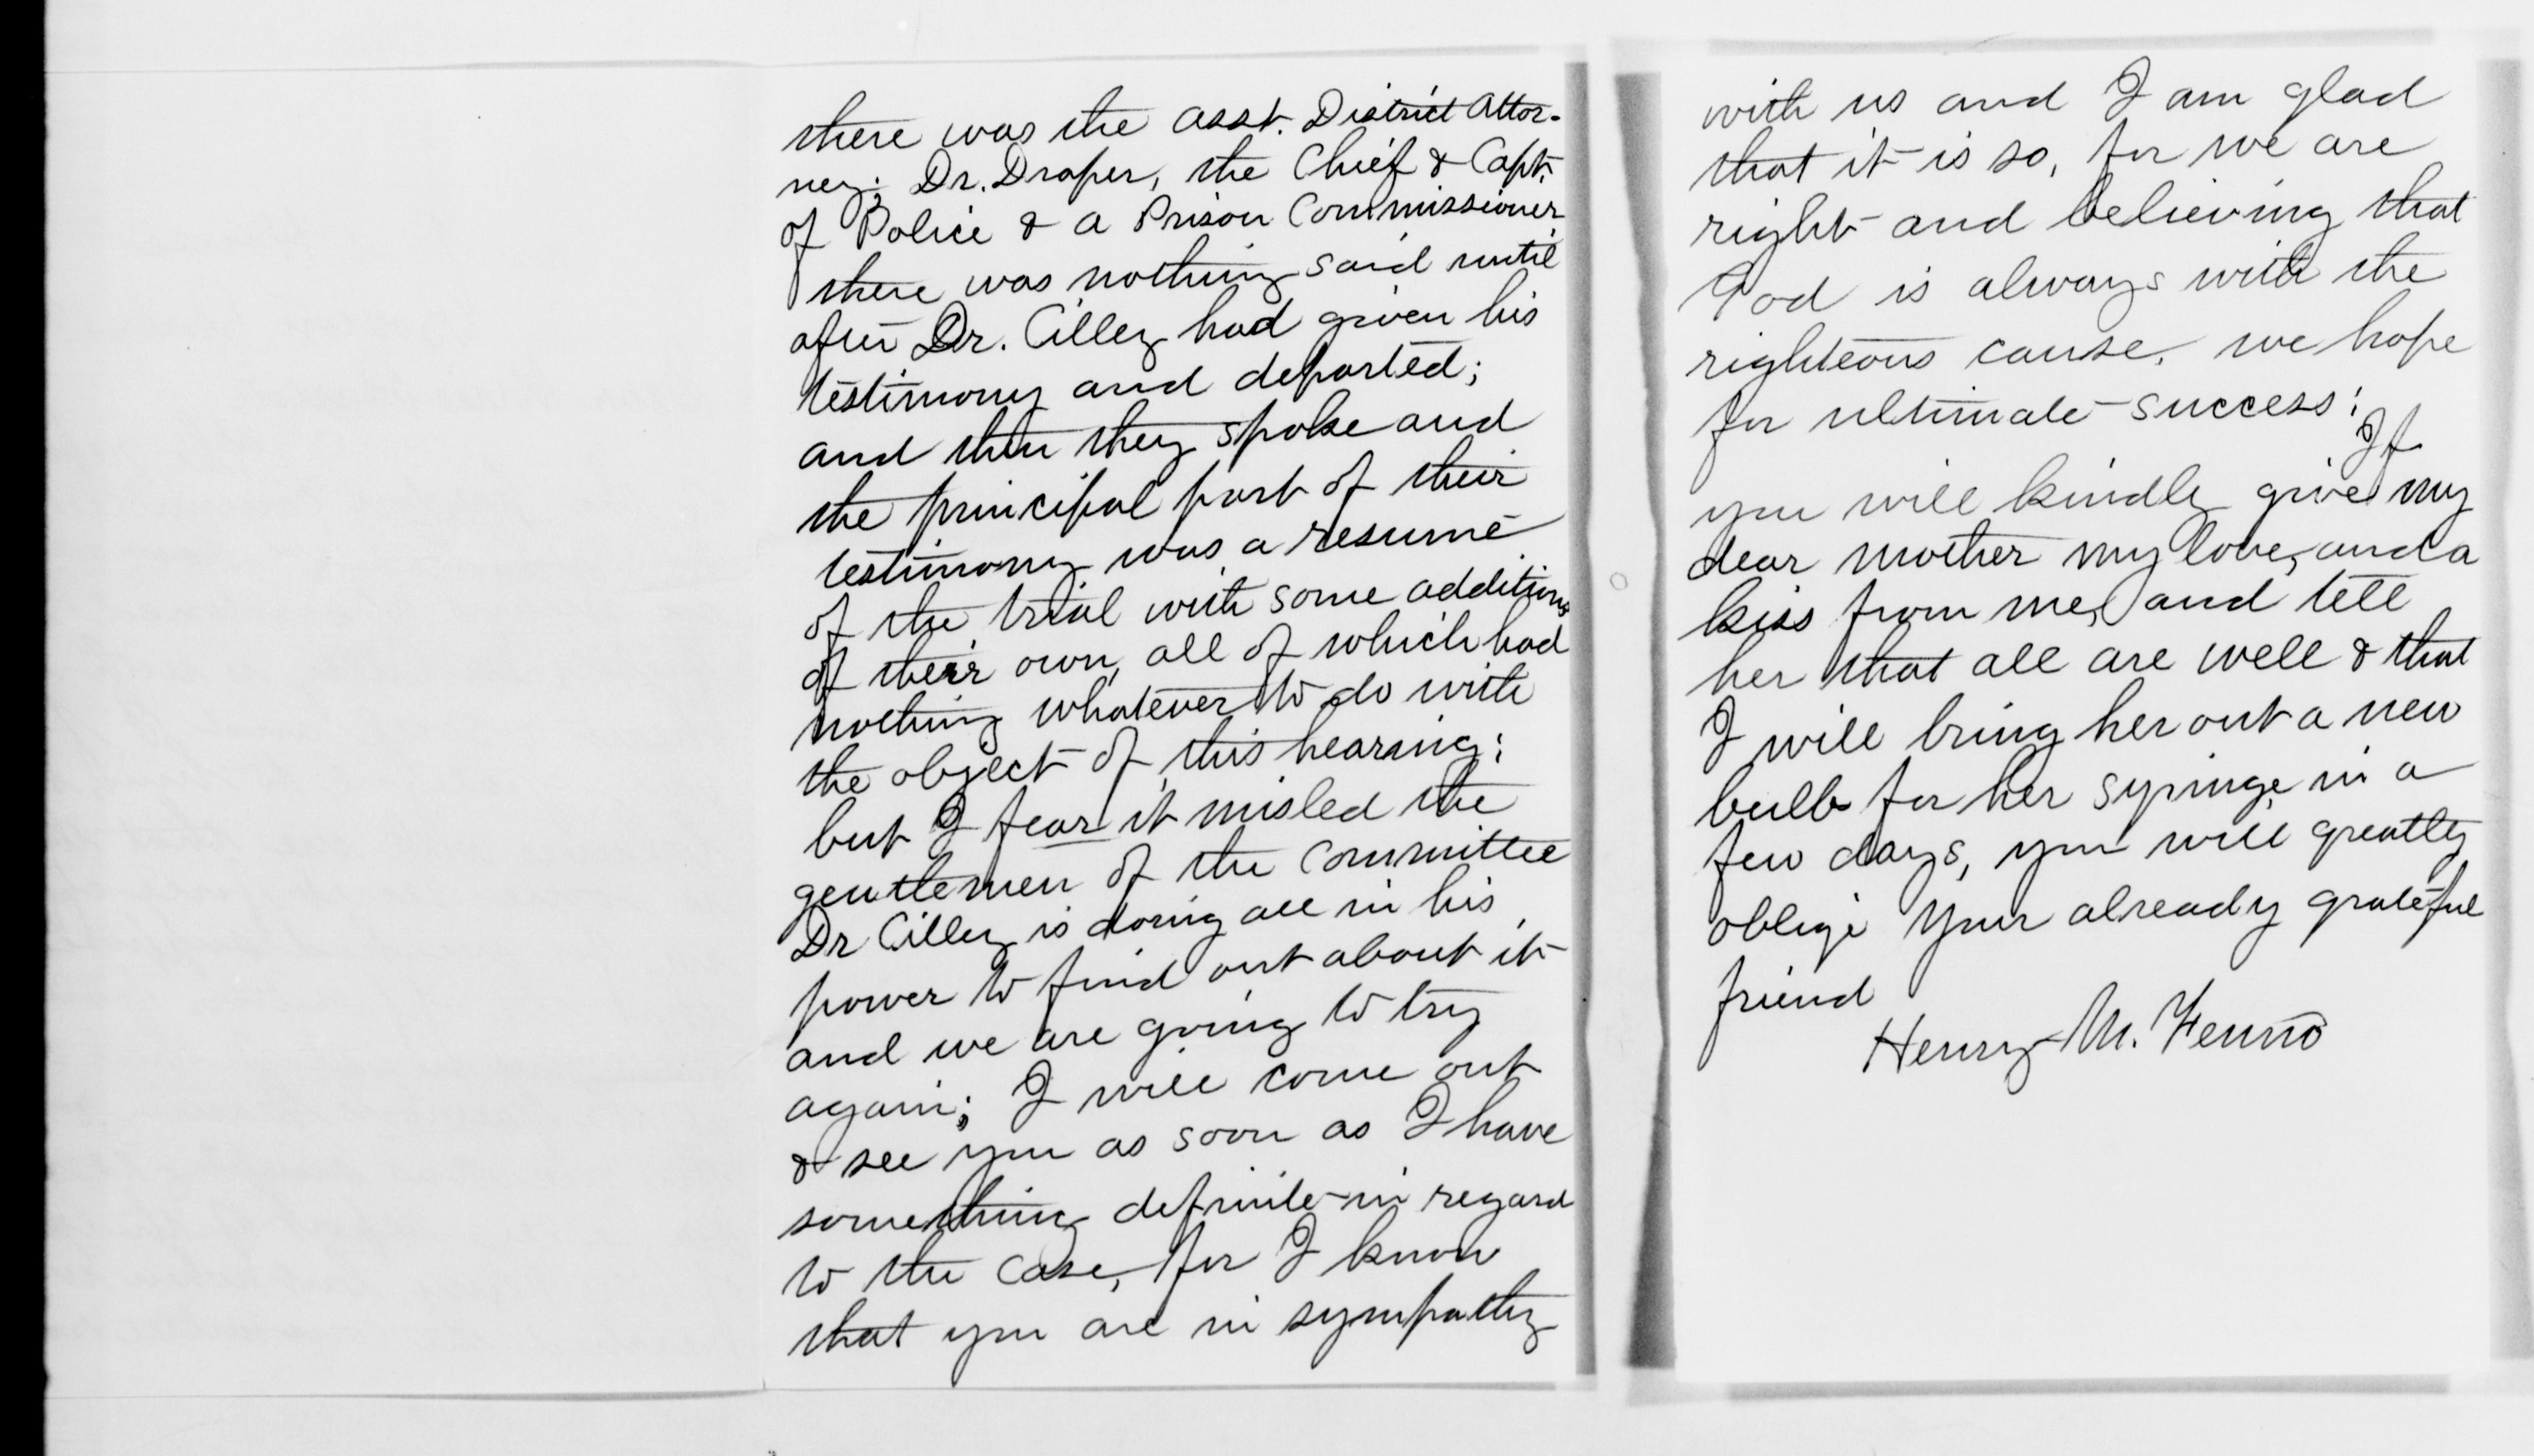 there was the asst. District Attor-
ney; Dr. Draper, the Chief & Capt.
of Police & a Prison Commissioner
there was nothing said until
after Dr. Cilley had given his
testimony and departed;
and then they spoke and
the principal part of their
testimony was a resumé
of the trial with some additions
of their own, all of which had
nothing whatever to do with
the object of this hearing;
but I fear it misled the
gentlemen of the Committee
Dr Cilley is doing all in his
power to find out about it
and we are going to try
again; I will come out
& see you as soon as I have
something definite in regard
to the case, for I know
that you are in sympathy
with us and I am glad
that it is so, for we are
right and believing that
God is always with the
righteous cause, we hope
for ultimate success;
If
you will kindly give my
dear mother my love, and a
kiss from me, and tell
her that all are well & that
I will bring her out a new
bulb for her syringe in a
few days, you will greatly
oblige Your already grateful
friend
Henry M. Fenno